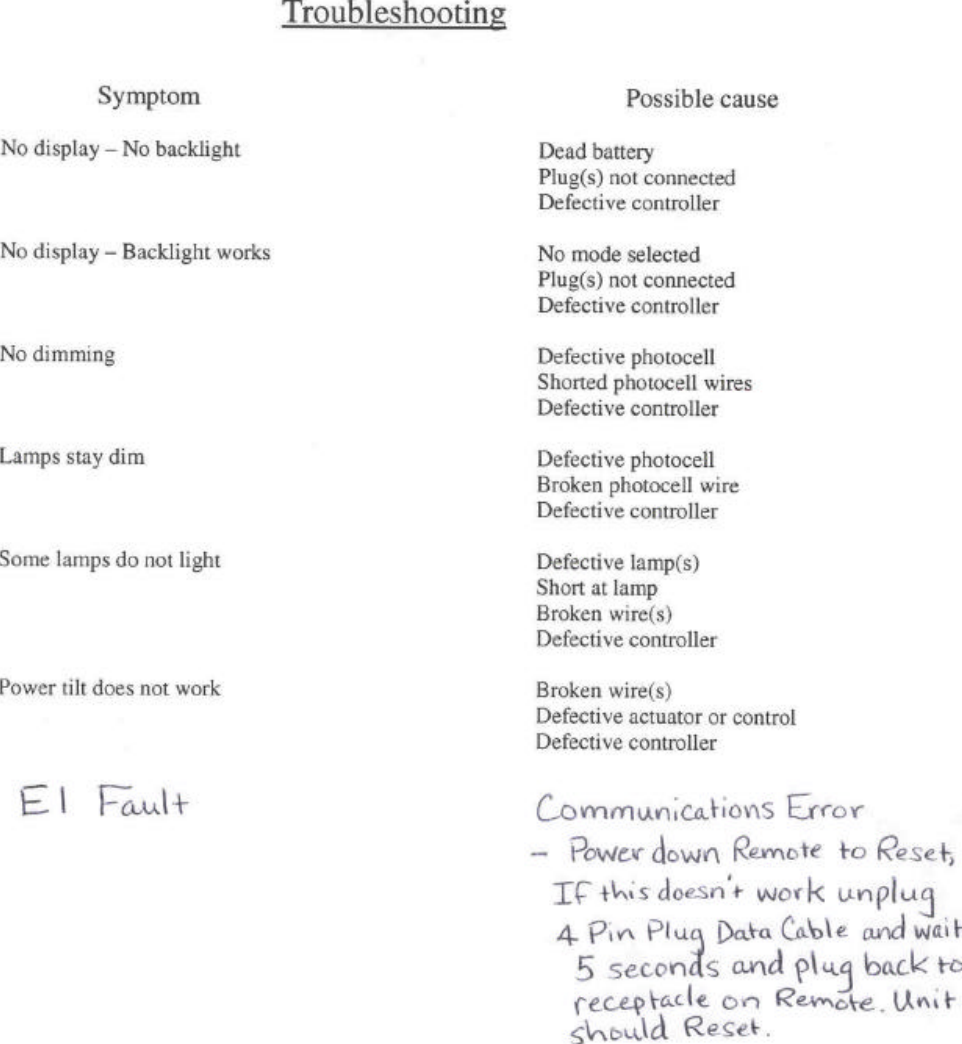 Troubleshooting
Symptom Possible cause
No display – No backlight Dead battery
Plug(s) not connected
Defective controller
No display – Backlight works No mode selected
Plug(s) not connected
Defective controller
No dimming Defective photocell
Shorted photocell wires
Defective controller
Lamps stay dim Defective photocell
Broken photocell wire
Defective controller
Some lamps do not light Defective lamp(s)
Short at lamp
Broken wire(s)
Defective controller
Power tilt does not work Broken wire(s)
Defective actuator or control
Defective controller
E1 Fault Communications Error
- Power down Remote to Reset,
If this doesn't work unplug
4 Pin Plug Data Cable and wait
5 seconds and plug back to
receptacle on Remote. Unit
should Reset.